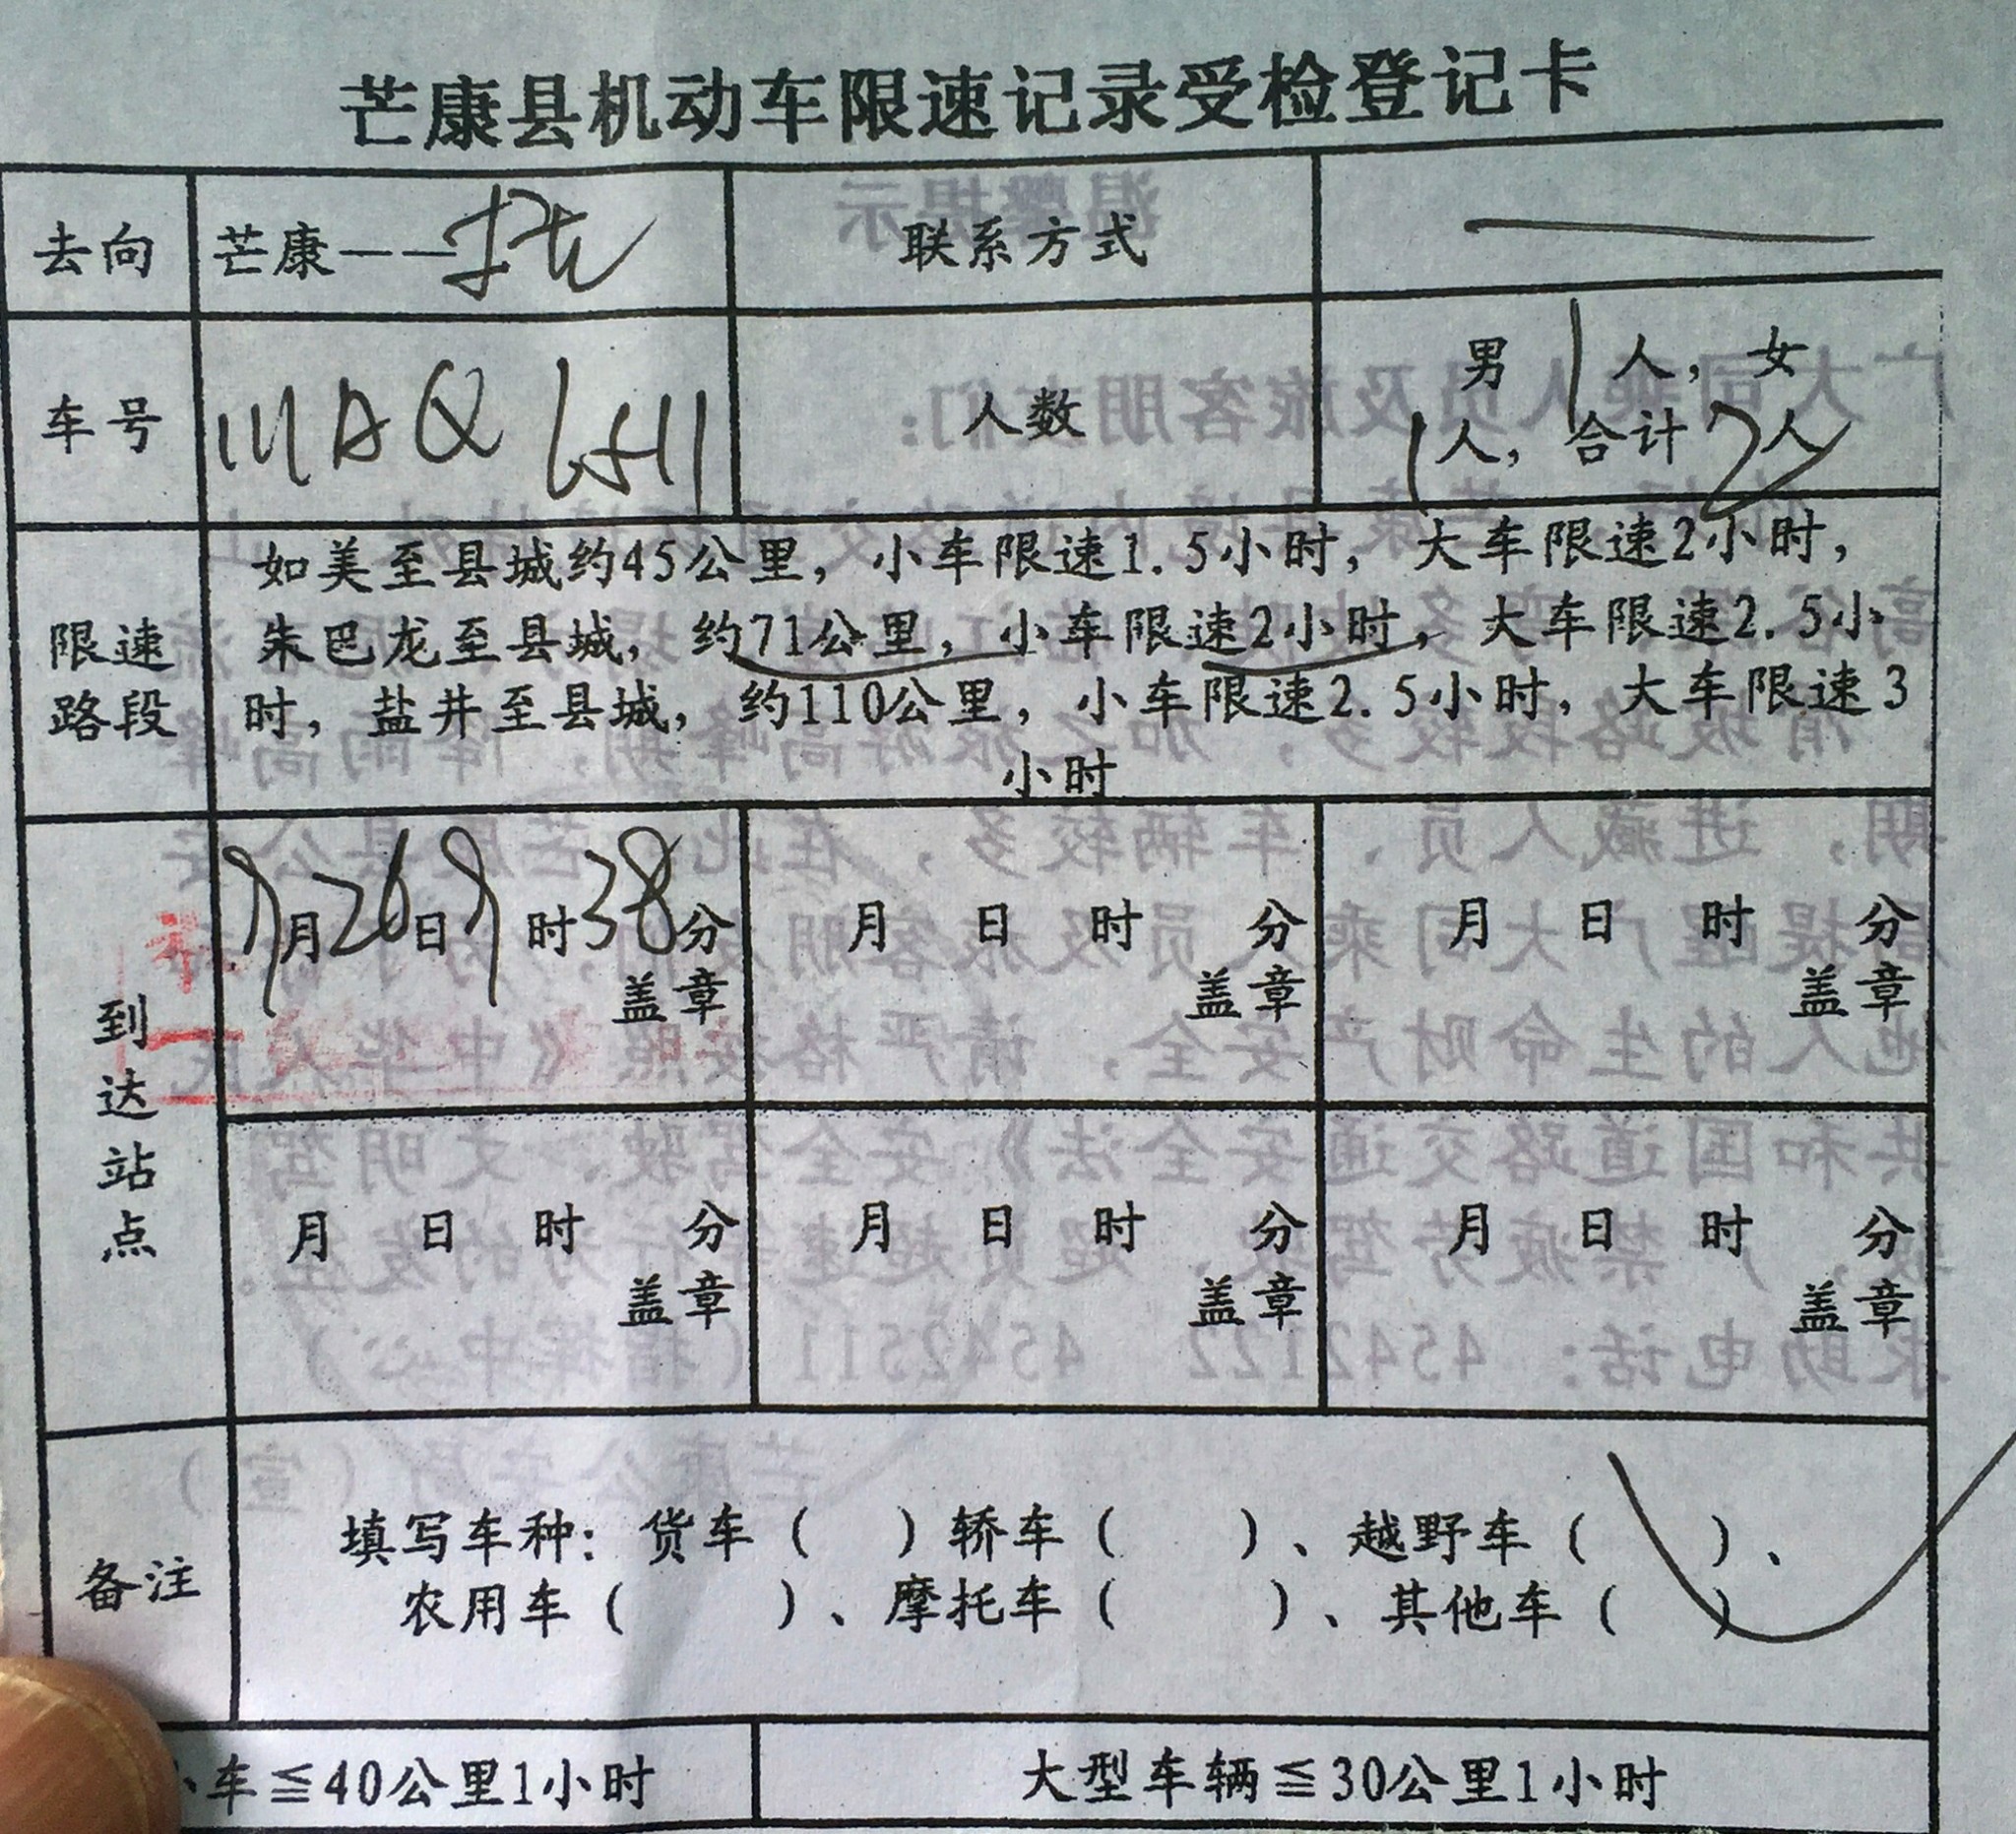 芒康县机动车限速记录受检登记卡
去向 芒康—— 联系方式 —
车号 人数 男1人，女
1人，合计2人
限速路段
如美至县城约45公里，小车限速1.5小时，大车限速2小时，
朱巴龙至县城，约71公里，小车限速2小时，大车限速2.5小
时，盐井至县城，约110公里，小车限速2.5小时，大车限速3
小时
到达站点
9月26日9时38分 月 日 时 分 月 日 时 分
盖章 盖章 盖章
月 日 时 分 月 日 时 分 月 日 时 分
盖章 盖章 盖章
备注
填写车种：货车（ ）轿车（ ）、越野车（ ）、
农用车（ ）、摩托车（ ）、其他车（ ）
小车≦40公里1小时 大型车辆≦30公里1小时